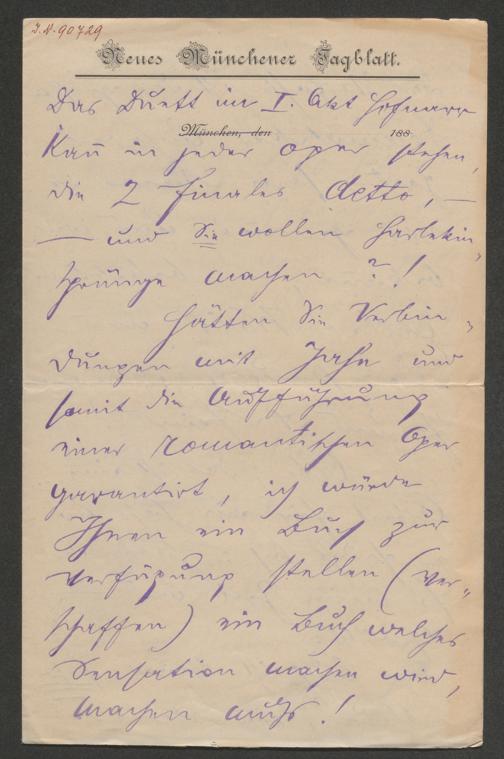 I.N. 90729
Neues Münchener Tagblatt.
Das Duett im I. Akt Hofnarr
München, den 188
kan̄ in jeder Oper stehen,
die 2 Finales detto, —
— und Sie wollen Harlekin„
sprünge machen ?!
Hätten Sie Verbin„
dungen mit Jahn und
somit die Aufführung
einer romantischen Oper
garantirt, ich würde
Ihnen ein Buch zur
Verfügung stellen (ver„
schaffen) ein Buch welches
Sensation machen wird,
machen muss!